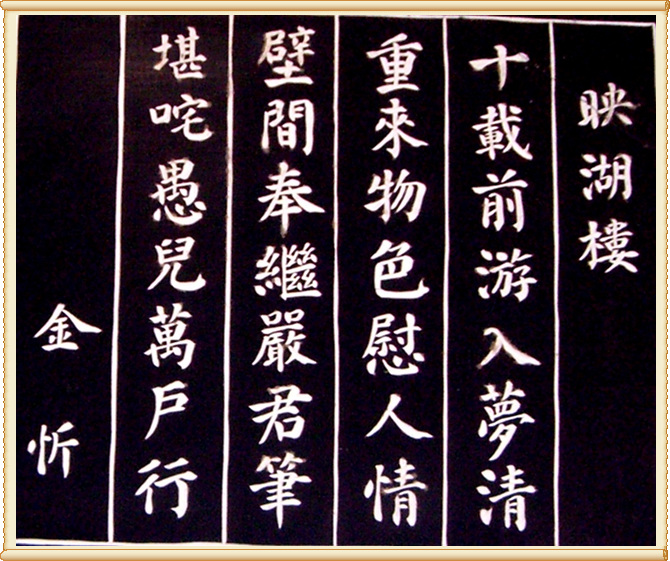 映湖樓
十載前游入夢清
重來物色慰人情
壁間奉繼嚴君筆
堪咤愚兒萬戶行
金忻